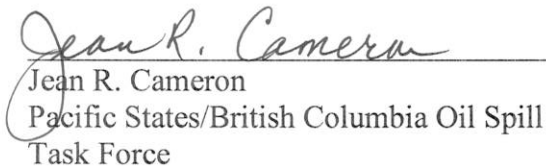 Jean R. Cameron
Jean R. Cameron
Pacific States/British Columbia Oil Spill
Task Force